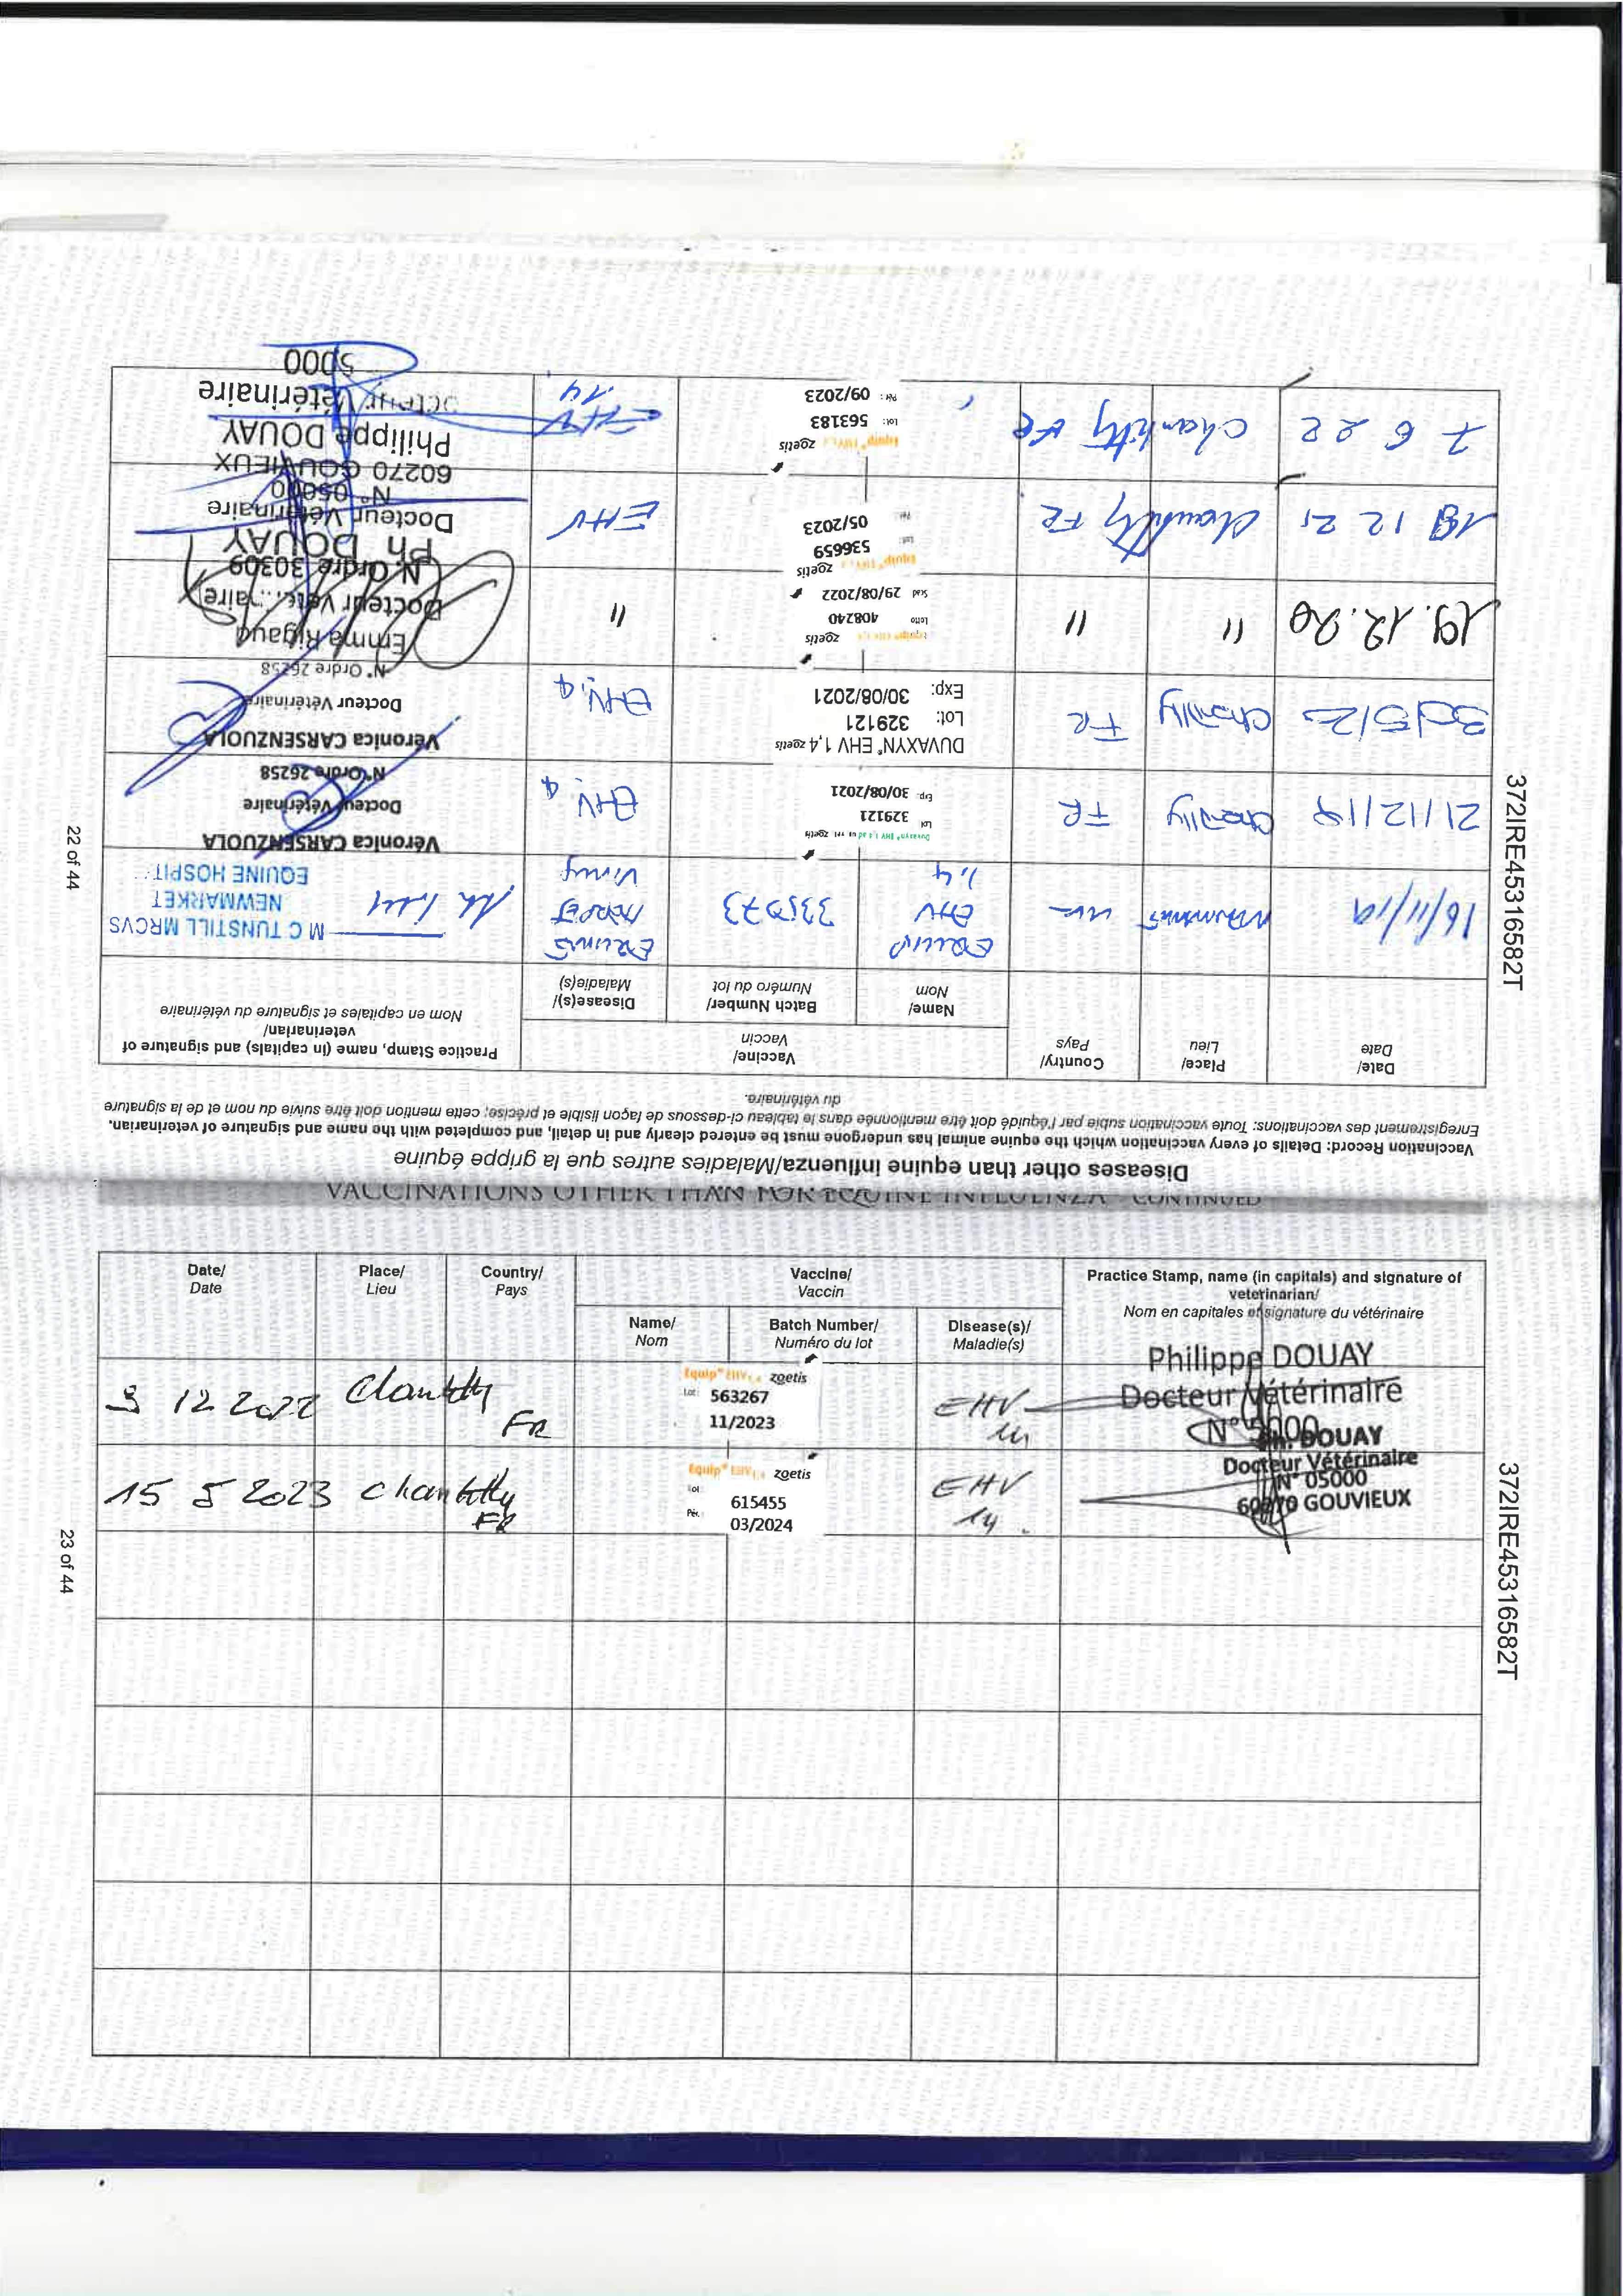 Diseases other than equine influenza/Maladies autres que la grippe équine
Vaccination Record: Details of every vaccination which the equine animal has undergone must be entered clearly and in detail, and completed with the name and signature of veterinarian.
Enregistrement des vaccinations: Toute vaccination subie par l'équidé doit être mentionnée dans le tableau ci-dessous de façon lisible et précise; cette mention doit être suivie du nom et de la signature
du vétérinaire.
Date/
Date
Place/
Lieu
Country/
Pays
Vaccine/
Vaccin
Practice Stamp, name (in capitals) and signature of
veterinarian/
Nom en capitales et signature du vétérinaire
Name/
Nom
Batch Number/
Numéro du lot
Disease(s)/
Maladie(s)
16/11/19
EQUIP
EHV
1.4
335073
EQUINE
HERPES
VIRUS
M C TUNSTILL MRCVS
NEWMARKET
EQUINE HOSPIT
21/12/19
Chantilly
FR
Duvaxyn® EHV 1,4 ad us vet zoetis
Lot: 329121
Exp: 30/08/2021
EHV1,4
Véronica CARSENZUOLA
Docteur Vétérinaire
N° Ordre 26258
Chantilly
FR
DUVAXYN® EHV 1,4 zoetis
Lot: 329121
Exp: 30/08/2021
EHV1,4
Véronica CARSENZUOLA
Docteur Vétérinaire
N° Ordre 26258
19.12.20
"
"
Equip® EHV 1,4 zoetis
Lotto 408240
Scad 29/08/2022
"
Emma Rigaud
Docteur Vétérinaire
N. Ordre 30309
18 12 21
Chantilly FR
Equip® EHV 1,4 zoetis
Lot: 536659
Pér. 05/2023
EHV
Ph. DOUAY
Docteur Vétérinaire
N° 05000
60270 GOUVIEUX
7 6 22
Chantilly FR
Equip® EHV 1,4 zoetis
Lot: 563183
Pér.: 09/2023
EHV
14
Philippe DOUAY
Docteur Vétérinaire
5000
372IRE45316582T
22 of 44
VACCINATIONS OTHER THAN FOR EQUINE INFLUENZA - CONTINUED
Date/
Date
Place/
Lieu
Country/
Pays
Vaccine/
Vaccin
Practice Stamp, name (in capitals) and signature of
veterinarian/
Nom en capitales et signature du vétérinaire
Name/
Nom
Batch Number/
Numéro du lot
Disease(s)/
Maladie(s)
3 12 2022
Chantilly
FR
Equip® EHV1,4 zoetis
Lot: 563267
11/2023
EHV
14
Philippe DOUAY
Docteur Vétérinaire
N° 5000
15 5 2023
Chantilly
FR
Equip® EHV1,4 zoetis
Lot
615455
Pér.: 03/2024
EHV
14.
Ph. DOUAY
Docteur Vétérinaire
N° 05000
60270 GOUVIEUX
372IRE45316582T
23 of 44